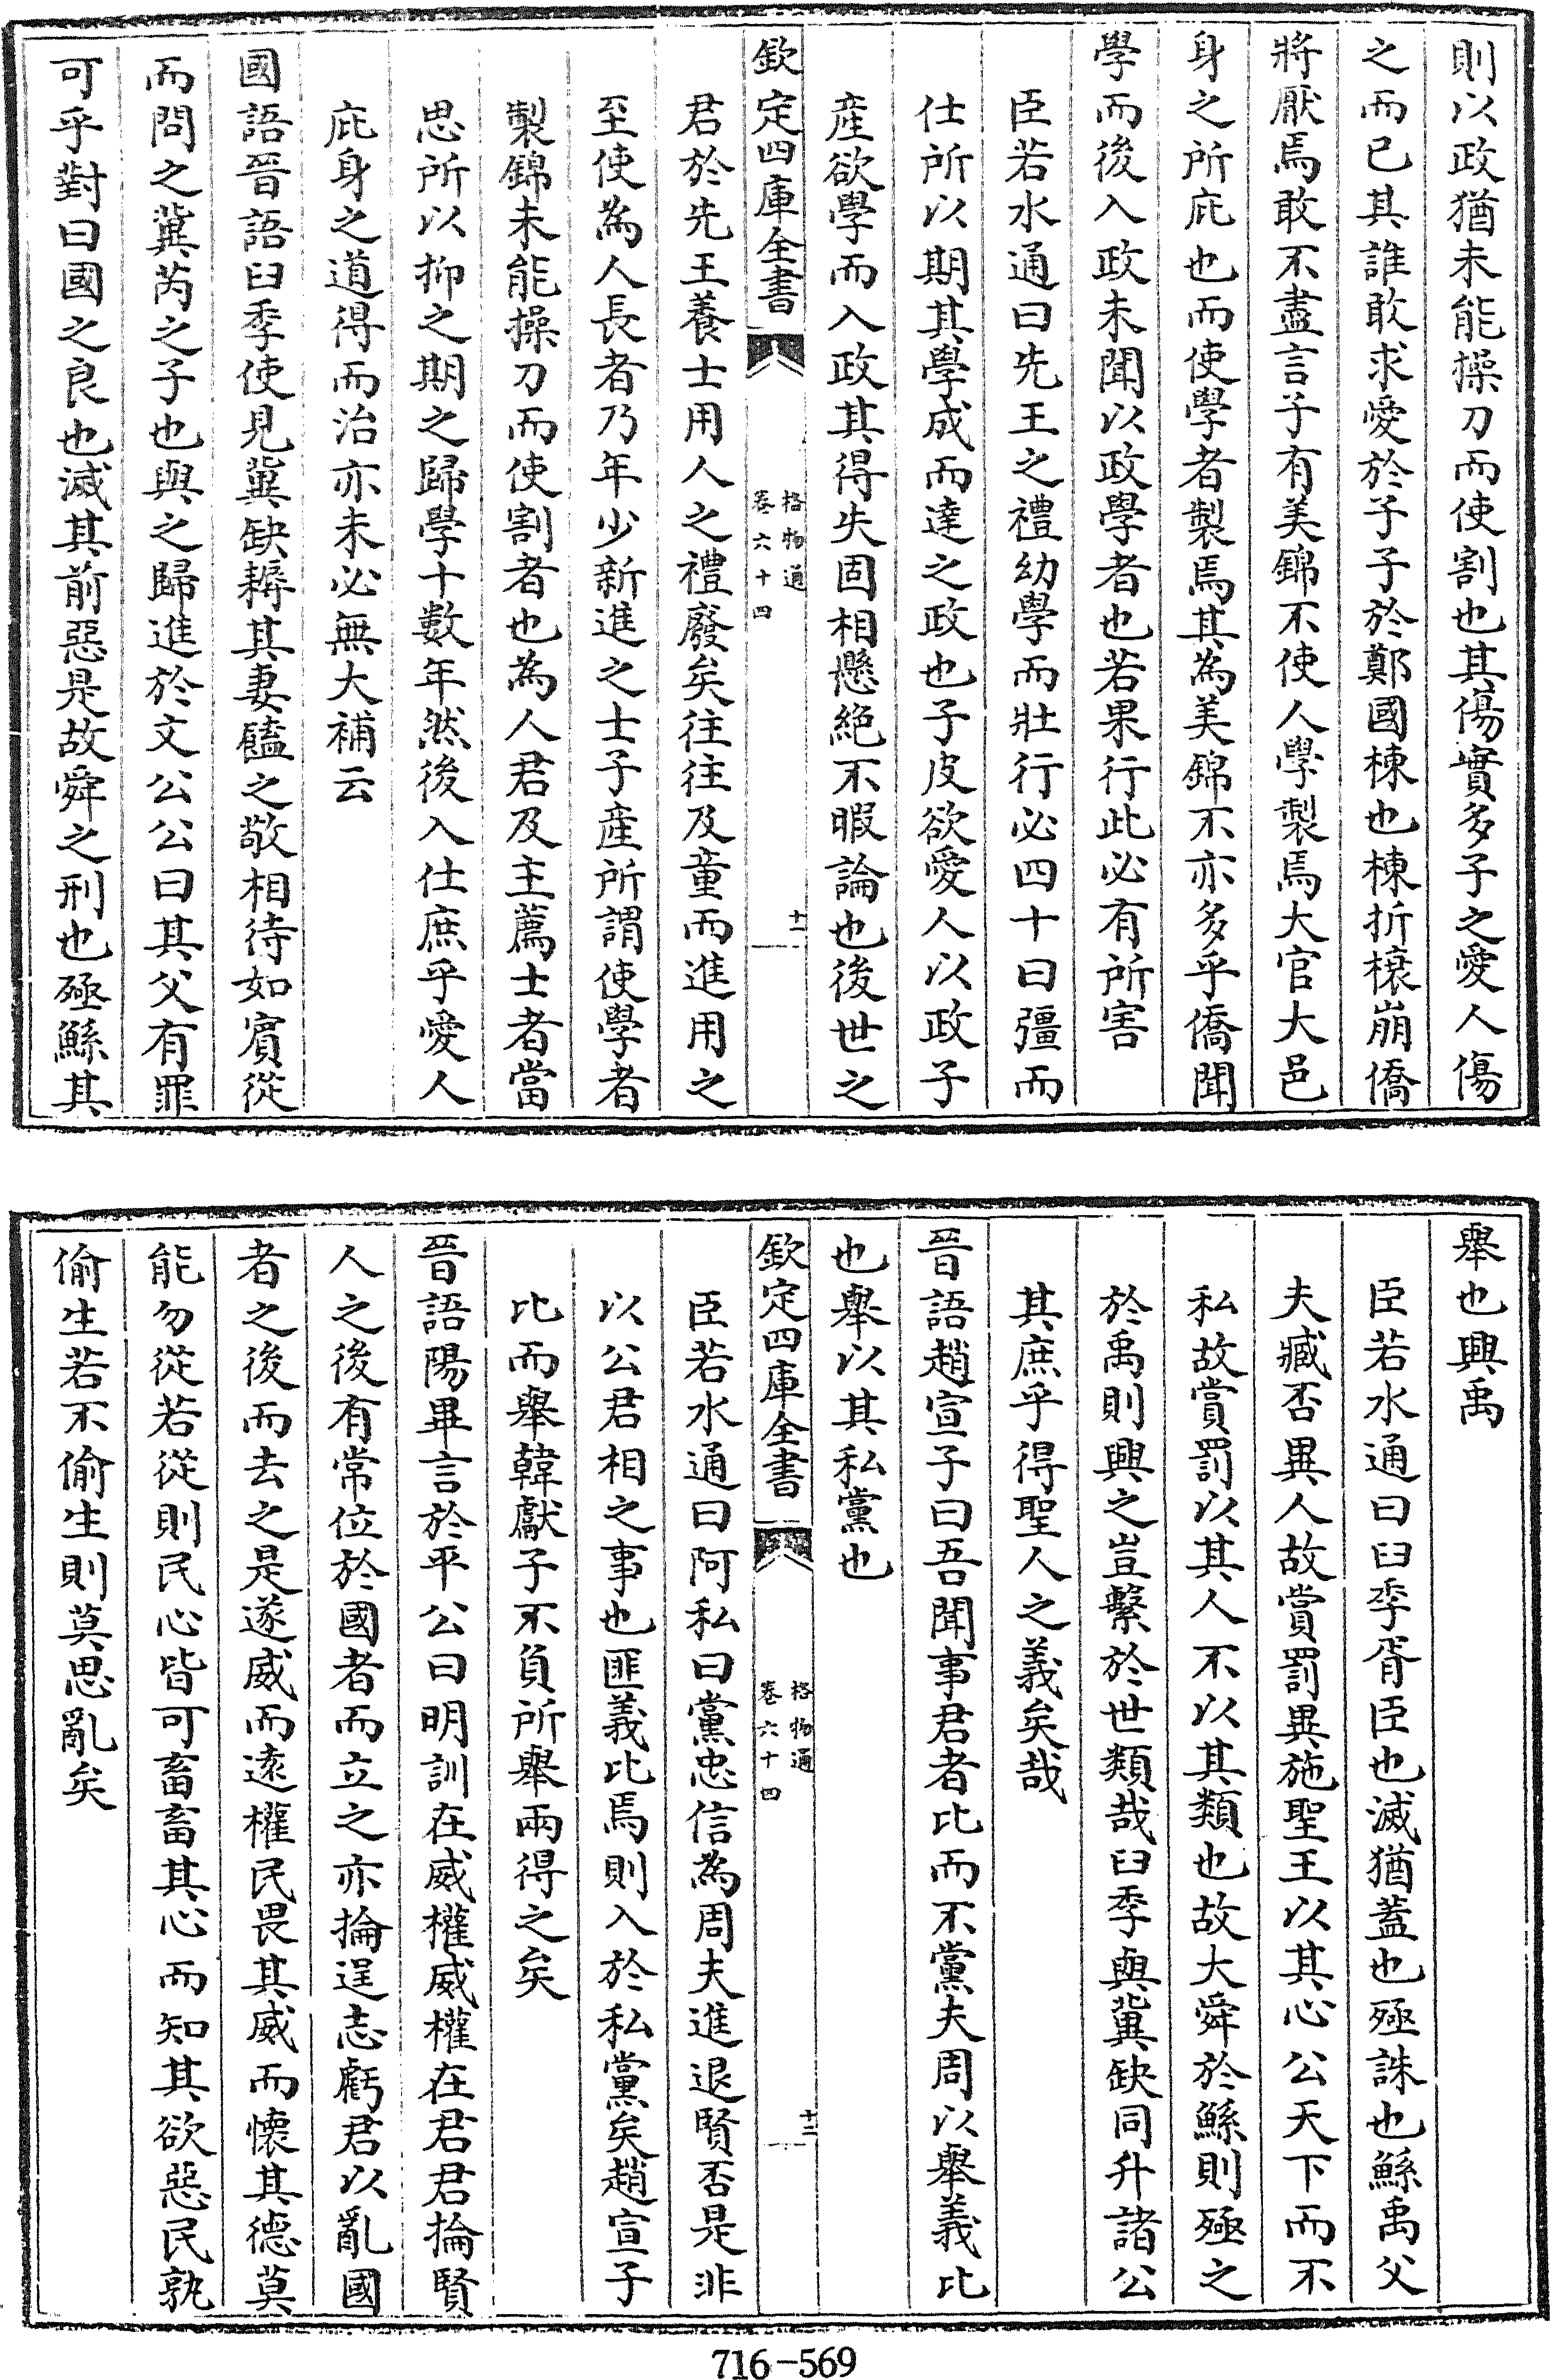 則以政猶未能操刀而使割也其傷實多子之愛人傷
之而已其誰敢求愛於子子於鄭國棟也棟折榱崩僑
將厭焉敢不盡言子有美錦不使人學製焉大官大邑
身之所庇也而使學者製焉其為美錦不亦多乎僑聞
學而後入政未聞以政學者也若果行此必有所害
臣若水通曰先王之禮幼學而壯行必四十曰彊而
仕所以期其學成而達之政也子皮欲愛人以政子
產欲學而入政其得失固相懸絕不暇論也後世之
欽定四庫全書
格物通
卷六十四
十二
君於先王養士用人之禮廢矣往往及童而進用之
至使為人長者乃年少新進之士子產所謂使學者
製錦未能操刀而使割者也為人君及主薦士者當
思所以抑之期之歸學十數年然後入仕庶乎愛人
庇身之道得而治亦未必無大補云
國語晉語臼季使見冀缺耨其妻饁之敬相待如賓從
而問之冀芮之子也與之歸進於文公公曰其父有罪
可乎對曰國之良也滅其前惡是故舜之刑也殛鯀其
舉也興禹
臣若水通曰臼季胥臣也滅猶蓋也殛誅也鯀禹父
夫臧否異人故賞罰異施聖王以其心公天下而不
私故賞罰以其人不以其類也故大舜於鯀則殛之
於禹則興之豈繫於世類哉臼季與冀缺同升諸公
其庶乎得聖人之義矣哉
晉語趙宣子曰吾聞事君者比而不黨夫周以舉義比
也舉以其私黨也
欽定四庫全書
格物通
卷六十四
十三
臣若水通曰阿私曰黨忠信為周夫進退賢否是非
以公君相之事也匪義比焉則入於私黨矣趙宣子
比而舉韓獻子不負所舉兩得之矣
晉語陽畢言於平公曰明訓在威權威權在君君掄賢
人之後有常位於國者而立之亦掄逞志虧君以亂國
者之後而去之是遂威而遠權民畏其威而懷其德莫
能勿從若從則民心皆可畜畜其心而知其欲惡民孰
偷生若不偷生則莫思亂矣
716-569